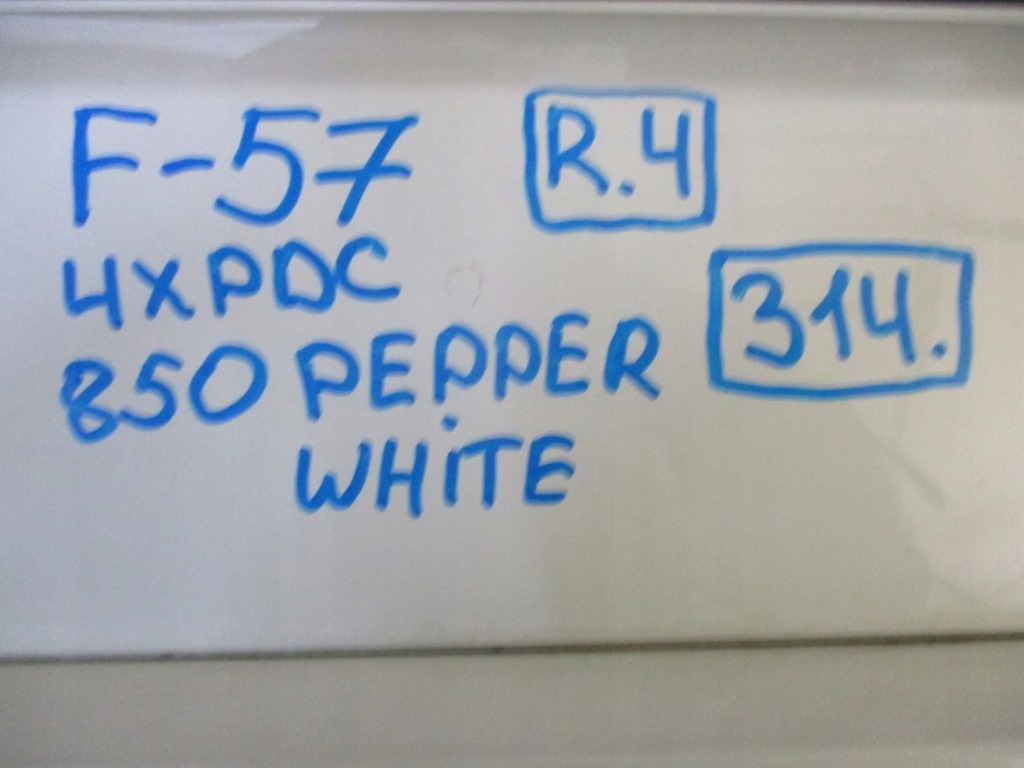 F-57 R.4
4XPDC
850 PEPPER 314.
WHITE